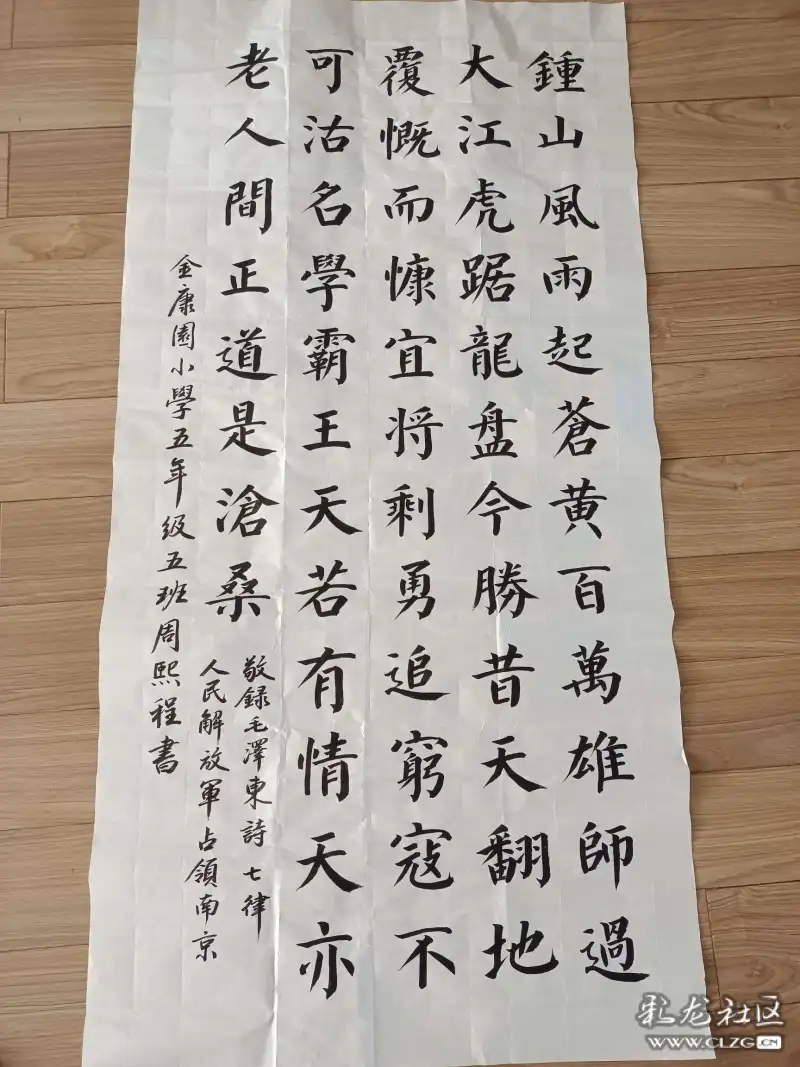 鍾山風雨起蒼黄百萬雄師過
大江虎踞龍盤今勝昔天翻地
覆慨而慷宜将剩勇追窮寇不
可沽名學霸王天若有情天亦
老人間正道是滄桑
敬録毛澤東詩七律
人民解放軍占領南京
金康園小學五年级五班周熙程書
彩龙社区
www.CLZG.CN